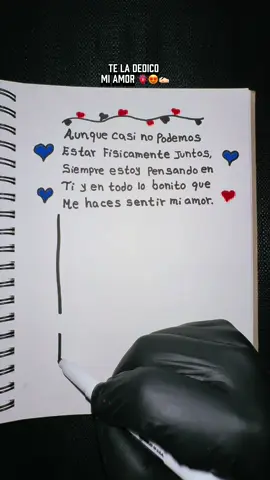 TE LA DEDICO
MI AMOR
Aunque casi no Podemos
Estar Fisicamente Juntos,
Siempre estoy Pensando en
Ti y en todo lo bonito que
Me haces sentir mi amor.